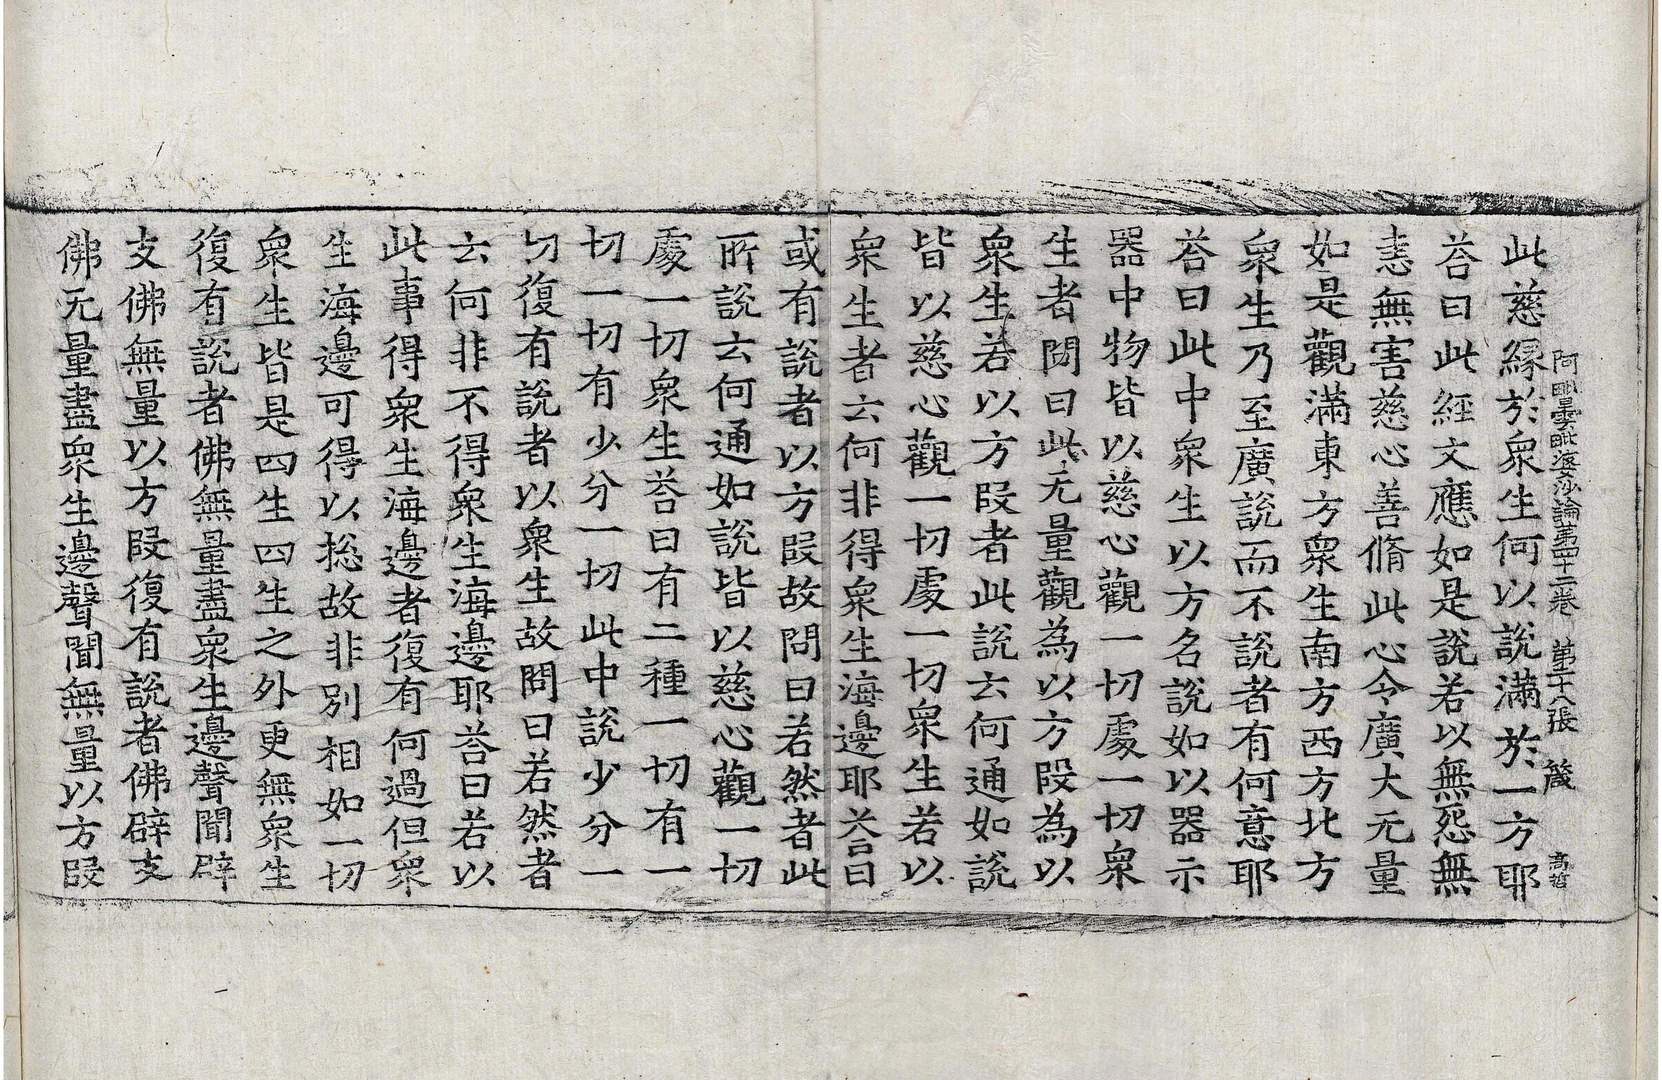 阿毗曇毗婆沙論第四十二卷 第十八張 箴 高哲
此慈緣於衆生何以說滿於一方耶
荅曰此經文應如是說若以無怨無
恚無害慈心善脩此心令廣大无量
如是觀滿東方衆生南方西方北方
衆生乃至廣說而不說者有何意耶
荅曰此中衆生以方名說如以器示
器中物皆以慈心觀一切處一切衆
生者問曰此无量觀為以方段為以
衆生若以方段者此說云何通如說
皆以慈心觀一切處一切衆生若以
衆生者云何非得衆生海邊耶荅曰
或有說者以方段故問曰若然者此
所說云何通如說皆以慈心觀一切
處一切衆生荅曰有二種一切有一
切一切有少分一切此中說少分一
切復有說者以衆生故問曰若然者
云何非不得衆生海邊耶荅曰若以
此事得衆生海邊者復有何過但衆
生海邊可得以揔故非別相如一切
衆生皆是四生四生之外更無衆生
復有說者佛無量盡衆生邊聲聞辟
支佛無量以方段復有說者佛辟支
佛无量盡衆生邊聲聞無量以方段